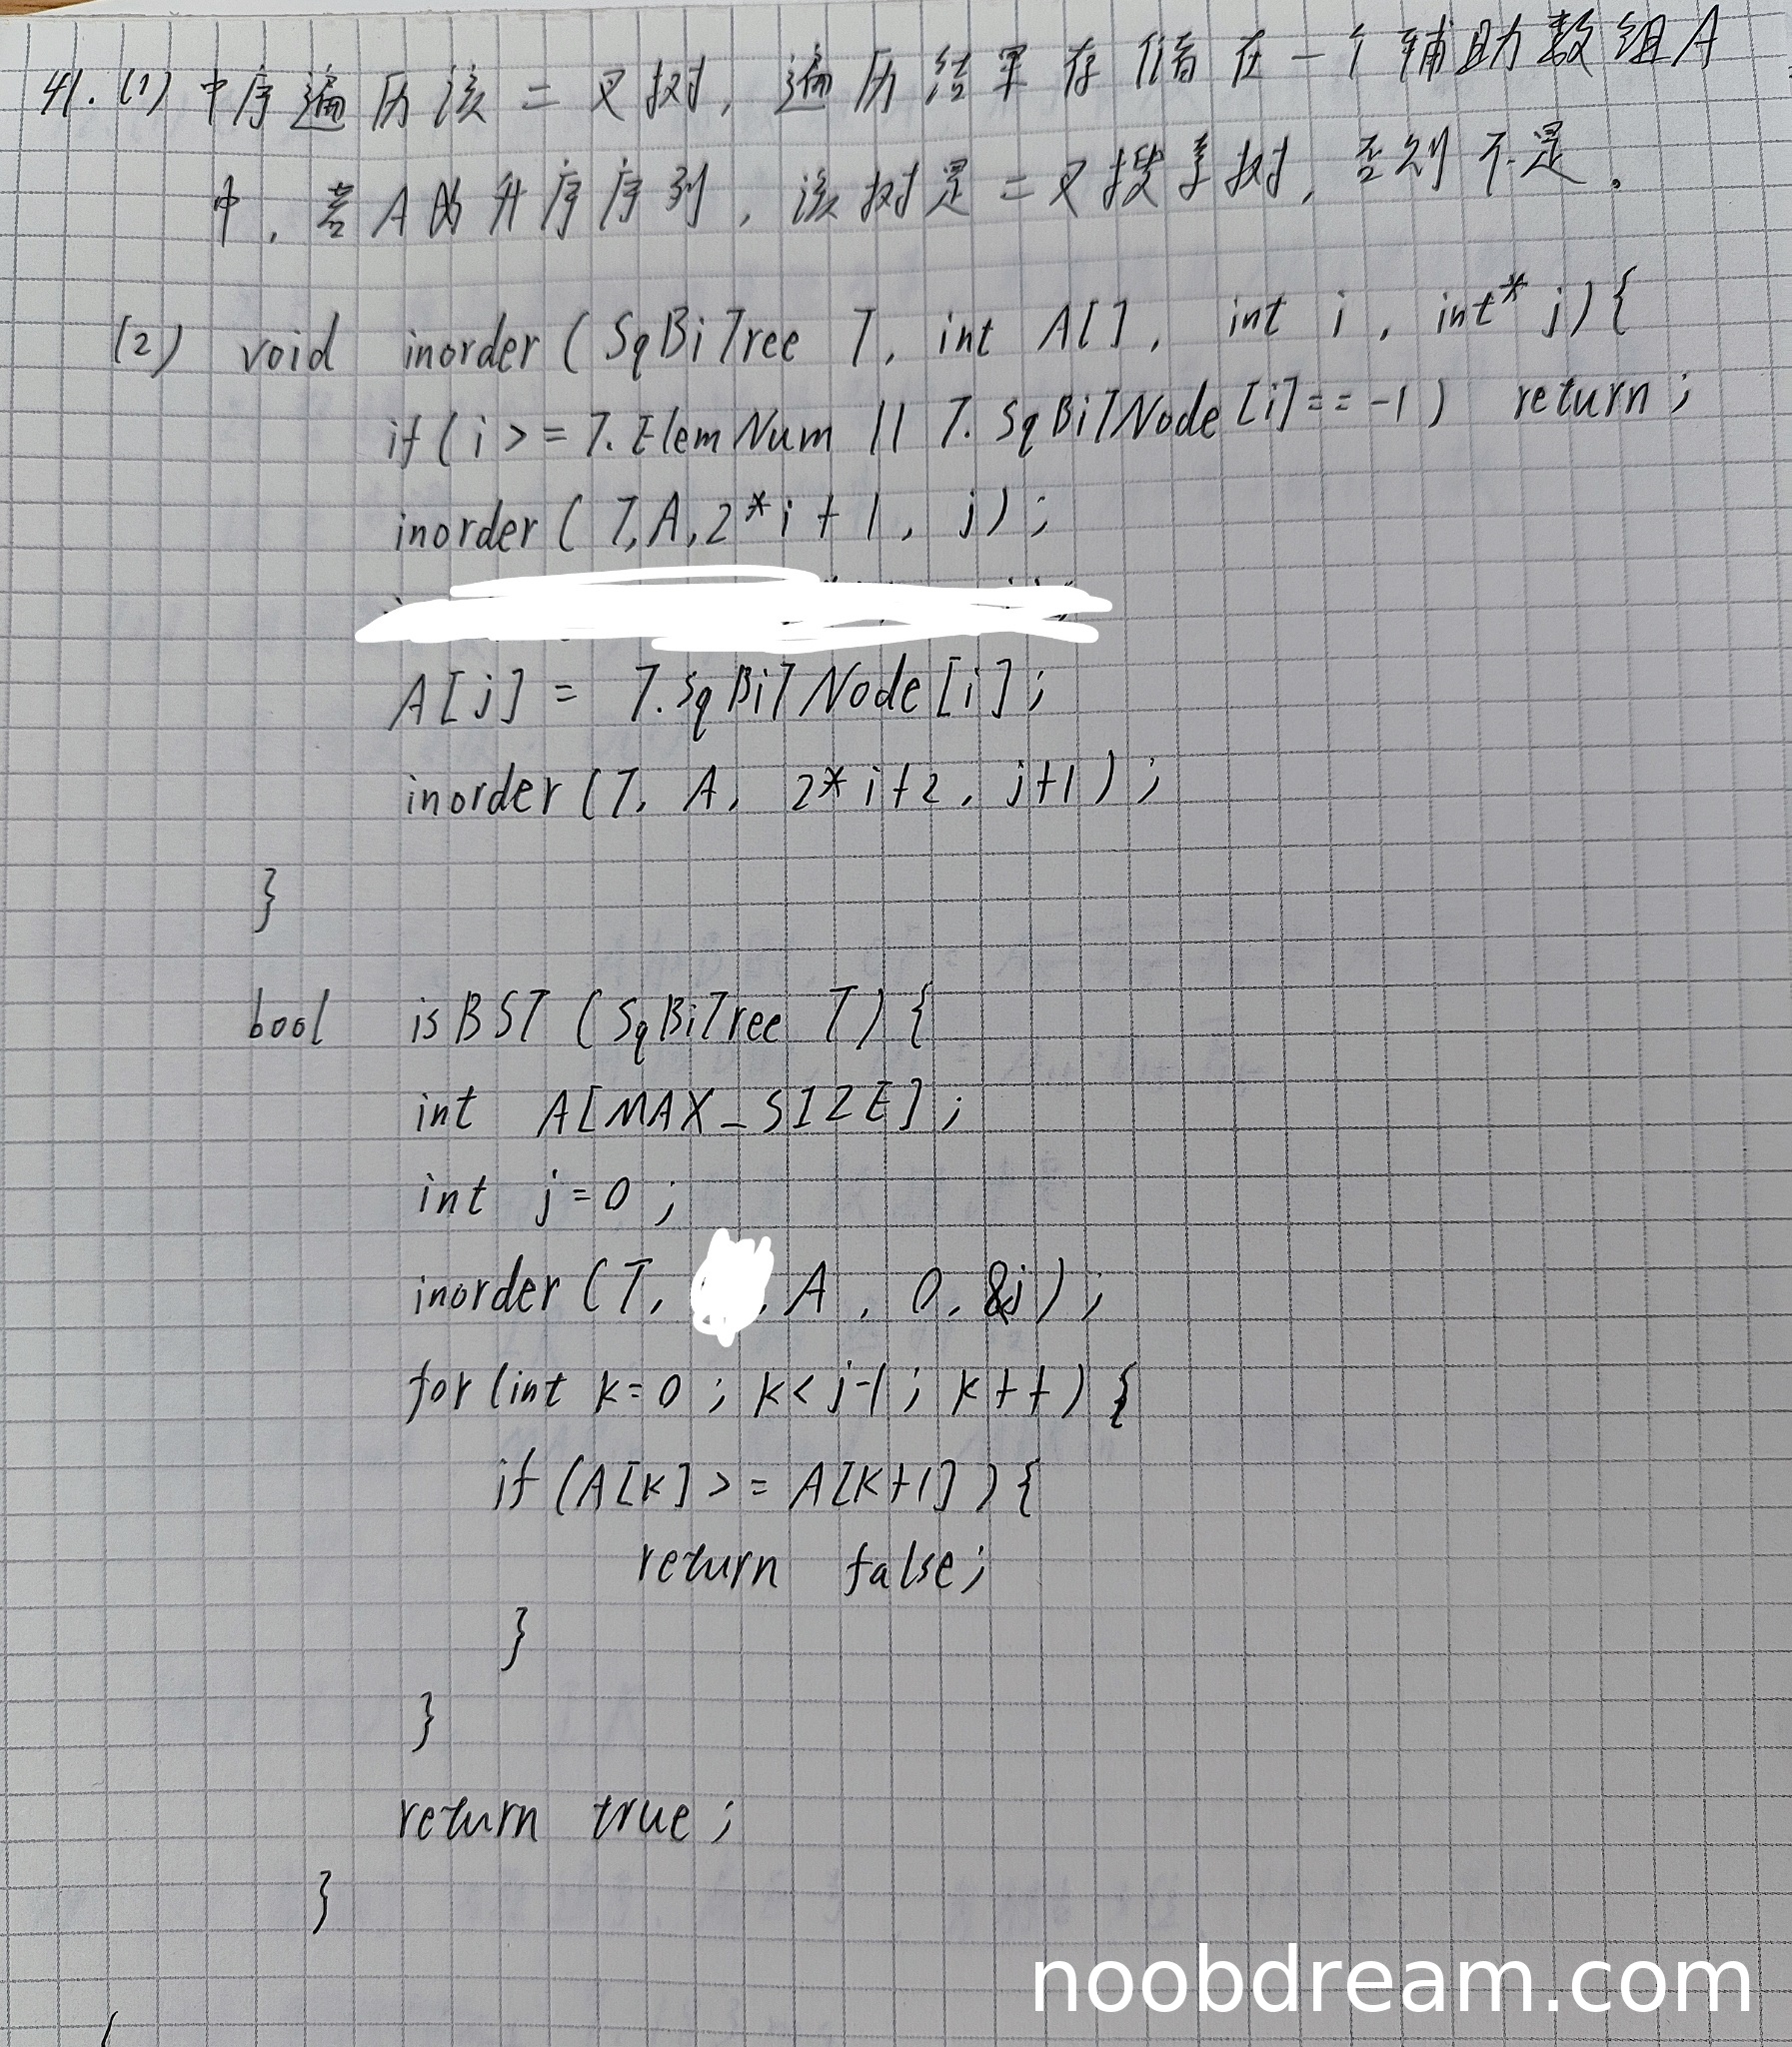 41. (1) 中序遍历该二叉树, 遍历结果存储在一个辅助数组A
中, 若A为升序序列, 该树是二叉搜索树, 否则不是。
(2) void inorder (SqBiTree T, int A[], int i, int* j){
if (i >= T.ElemNum || T.SqBiTNode[i]==-1) return;
inorder (T,A,2*i+1, j);
A[j] = T.SqBiTNode[i];
inorder (T, A, 2*i+2, j+1);
}
bool isBST (SqBiTree T) {
int A[MAX_SIZE];
int j=0;
inorder (T, , A, 0, &j);
for (int k=0; k<j-1; k++) {
if (A[k] >= A[k+1]) {
return false;
}
}
return true;
}
noobdream.com